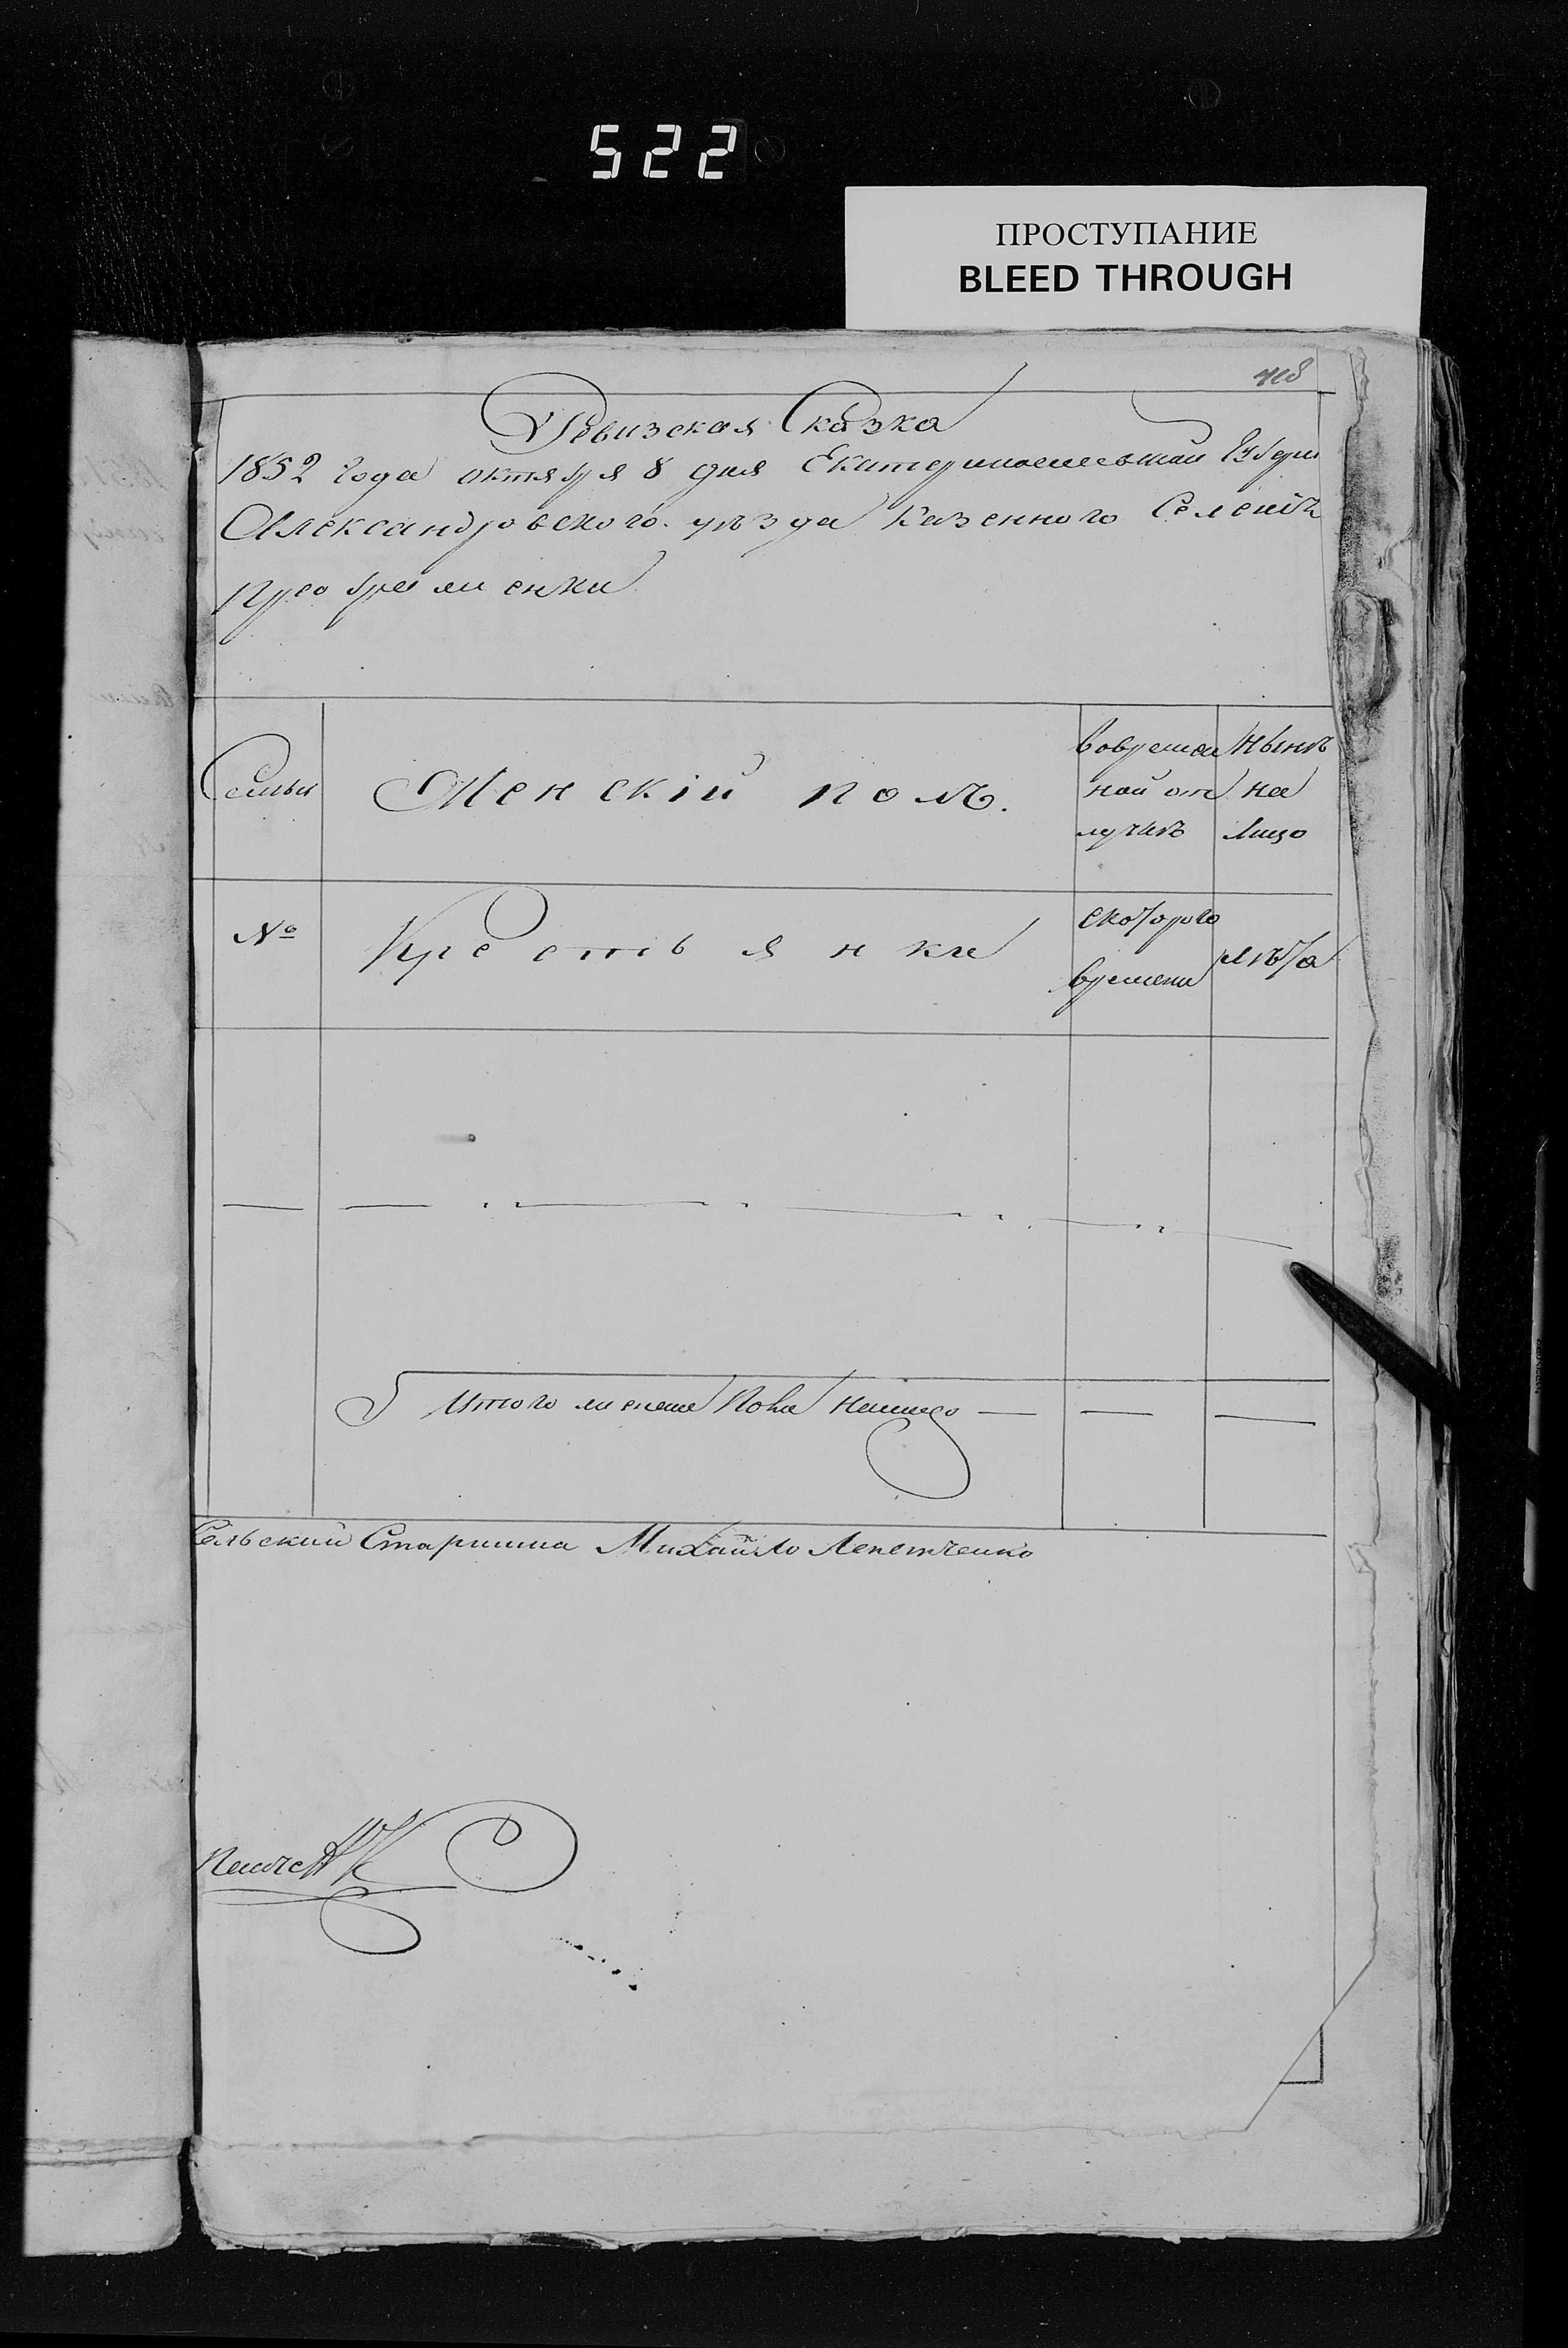 522
ПРОСТУПАНИЕ
BLEED THROUGH
Ревизская Сказка
1852 года октября 8 дня Екатеринославской Губерн
Александровского уѣзда Казенного Селенія
Преображенки
Семьи
Женскій полъ.
Вовремен
ной от
лучкѣ
Нынѣ
на
Лицо
№
Крестьянки
Скоторого
времени
Лѣта
Итого женска Пола налицо — — —
Сельский Старшина Михайло Лепетченко